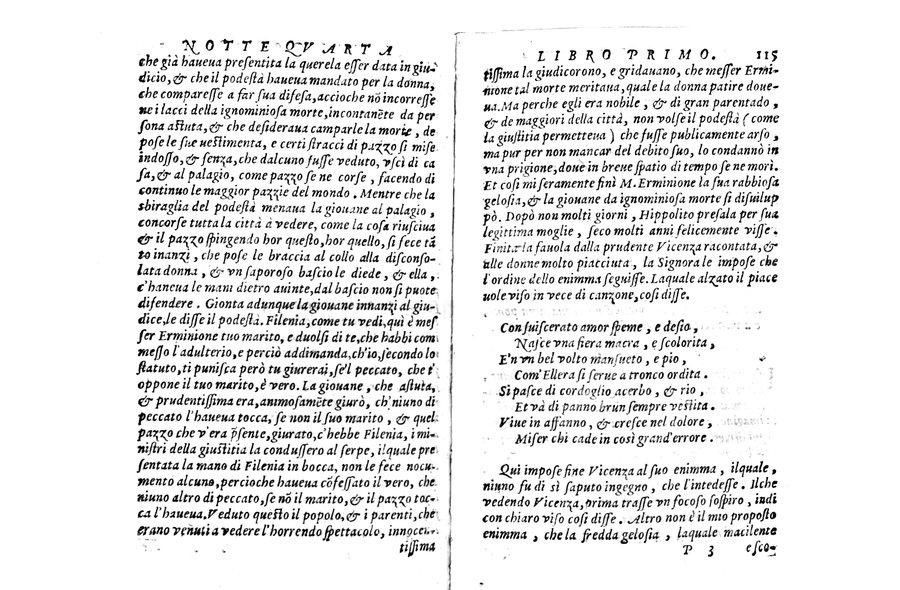 NOTTE QVARTA
che già haueua presentita la querela esser data in giu-
dicio, & che il podestà haueua mandato per la donna,
che comparesse a far sua difesa, accioche nõ incorresse
ne i lacci della ignominiosa morte, incontanẽte da per
sona astuta, & che desideraua camparle la morte, de
pose le sue uestimenta, e certi stracci di pazzo si mise
indosso, & senza, che dalcuno fusse veduto, vscì di ca
sa, & al palagio, come pazzo se ne corse, facendo di
continuo le maggior pazzie del mondo. Mentre che la
sbiraglia del podestà menaua la giouane al palagio,
concorse tutta la città à vedere, come la cosa riusciua
& il pazzo spingendo hor questo, hor quello, si fece tã
to inanzi, che pose le braccia al collo alla disconso-
lata donna, & vn saporoso bascio le diede, & ella,
c'haneua le mani dietro auinte, dal bascio non si puote
difendere. Gionta adunque la giouane innanzi al giu-
dice, le disse il podestà. Filenia, come tu vedi, quì è mes
ser Erminione tuo marito, e duolsi di te, che habbi com
messo l'adulterio, e perciò addimanda, ch'io, secondo lo
statuto, ti punisca però tu giurerai, se'l peccato, che t'
oppone il tuo marito, è vero. La giouane, che astuta,
& prudentissima era, animosamẽte giurò, ch'niuno di
peccato l'haueua tocca, se non il suo marito, & quel
pazzo che v'era p̃sente, giurato, c'hebbe Filenia, i mi-
nistri della giustitia la condussero al serpe, il quale pre
sentata la mano di Filenia in bocca, non le fece nocu-
mento alcuno, percioche haueua cõfessato il vero, che
niuno altro di peccato, se nõ il marito, & il pazzo toc-
ca l'haueua. Veduto questo il popolo, & i parenti, che
erano venuti a vedere l'horrendo spettacolo, innocen-
tissima
LIBRO PRIMO. 115
tissima la giudicorono, e gridauano, che messer Ermi-
nione tal morte meritaua, quale la donna patire doue-
ua. Ma perche egli era nobile, & di gran parentado,
& de maggiori della città, non volse il podestà (come
la giustitia permetteua) che fusse publicamente arso,
ma pur per non mancar del debito suo, lo condannò in
vna prigione, doue in breue spatio di tempo se ne morì.
Et così miseramente finì M. Erminione la sua rabbiosa
gelosia, & la giouane da ignominiosa morte si disuilup
pò. Dopò non molti giorni, Hippolito presala per sua
legittima moglie, seco molti anni felicemente visse.
Finita la fauola dalla prudente Vicenza racontata, &
alle donne molto piacciuta, la Signora le impose che
l'ordine dello enimma seguisse. Laquale alzato il piace
uole viso in vece di canzone, così disse.
Con suiscerato amor speme, e desio,
Nasce vna fiera macra, e scolorita,
E'n vn bel volto mansueto, e pio,
Com'Ellera si serue a tronco ordita.
Si pasce di cordoglio acerbo, & rio,
Et và di panno brun sempre vestita.
Viue in affanno, & cresce nel dolore,
Miser chi cade in così grand'errore.
Qui impose fine Vicenza al suo enimma, ilquale,
niuno fu di sì saputo ingegno, che l'intedesse. Ilche
vedendo Vicenza, prima trasse vn focoso sospiro, indi
con chiaro viso così disse. Altro non è il mio proposto
enimma, che la fredda gelosia, laquale macilente
P 3 esco-